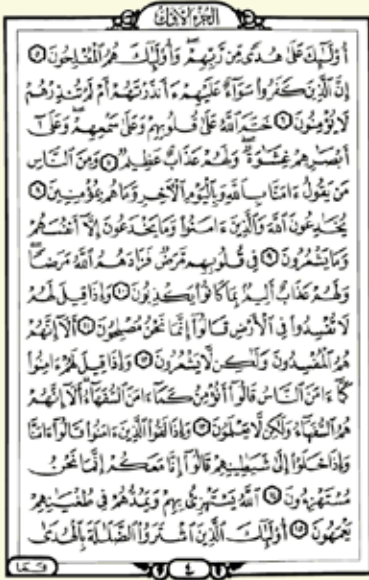 الجزء الأول
أُو۟لَٰٓئِكَ عَلَىٰ هُدًى مِّن رَّبِّهِمْ ۖ وَأُو۟لَٰٓئِكَ هُمُ ٱلْمُفْلِحُونَ ٥
إِنَّ ٱلَّذِينَ كَفَرُوا۟ سَوَآءٌ عَلَيْهِمْ ءَأَنذَرْتَهُمْ أَمْ لَمْ تُنذِرْهُمْ
لَا يُؤْمِنُونَ ٦ خَتَمَ ٱللَّهُ عَلَىٰ قُلُوبِهِمْ وَعَلَىٰ سَمْعِهِمْ ۖ وَعَلَىٰٓ
أَبْصَٰرِهِمْ غِشَٰوَةٌ ۖ وَلَهُمْ عَذَابٌ عَظِيمٌ ٧ وَمِنَ ٱلنَّاسِ
مَن يَقُولُ ءَامَنَّا بِٱللَّهِ وَبِٱلْيَوْمِ ٱلْءَاخِرِ وَمَا هُم بِمُؤْمِنِينَ ٨
يُخَٰدِعُونَ ٱللَّهَ وَٱلَّذِينَ ءَامَنُوا۟ وَمَا يَخْدَعُونَ إِلَّآ أَنفُسَهُمْ
وَمَا يَشْعُرُونَ ٩ فِى قُلُوبِهِم مَّرَضٌ فَزَادَهُمُ ٱللَّهُ مَرَضًا ۖ
وَلَهُمْ عَذَابٌ أَلِيمٌۢ بِمَا كَانُوا۟ يَكْذِبُونَ ١٠ وَإِذَا قِيلَ لَهُمْ
لَا تُفْسِدُوا۟ فِى ٱلْأَرْضِ قَالُوٓا۟ إِنَّمَا نَحْنُ مُصْلِحُونَ ١١ أَلَآ إِنَّهُمْ
هُمُ ٱلْمُفْسِدُونَ وَلَٰكِن لَّا يَشْعُرُونَ ١٢ وَإِذَا قِيلَ لَهُمْ ءَامِنُوا۟
كَمَآ ءَامَنَ ٱلنَّاسُ قَالُوٓا۟ أَنُؤْمِنُ كَمَآ ءَامَنَ ٱلسُّفَهَآءُ ۗ أَلَآ إِنَّهُمْ
هُمُ ٱلسُّفَهَآءُ وَلَٰكِن لَّا يَعْلَمُونَ ١٣ وَإِذَا لَقُوا۟ ٱلَّذِينَ ءَامَنُوا۟ قَالُوٓا۟ ءَامَنَّا
وَإِذَا خَلَوْا۟ إِلَىٰ شَيَٰطِينِهِمْ قَالُوٓا۟ إِنَّا مَعَكُمْ إِنَّمَا نَحْنُ
مُسْتَهْزِءُونَ ١٤ ٱللَّهُ يَسْتَهْزِئُ بِهِمْ وَيَمُدُّهُمْ فِى طُغْيَٰنِهِمْ
يَعْمَهُونَ ١٥ أُو۟لَٰٓئِكَ ٱلَّذِينَ ٱشْتَرَوُا۟ ٱلضَّلَٰلَةَ بِٱلْهُدَىٰ
٤
فَمَا